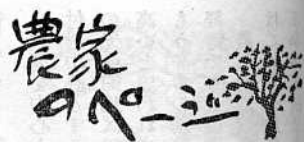 農家
のページ